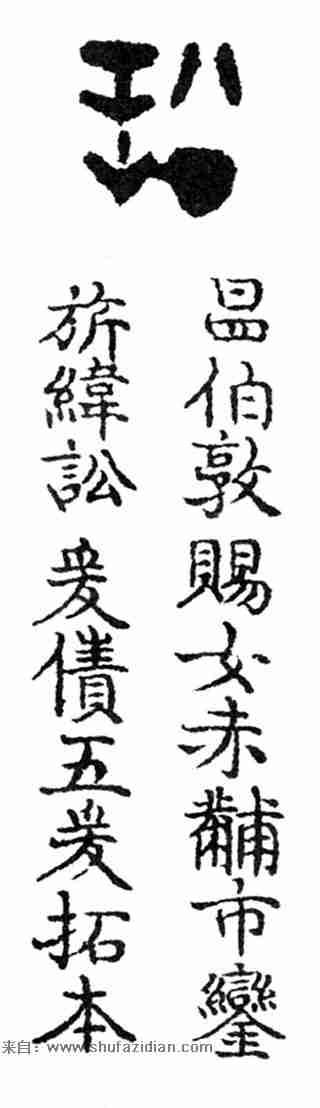 伯敦賜女赤黼市鑾
旂緯訟爰債五爰拓本
来自：www.shufazidian.com